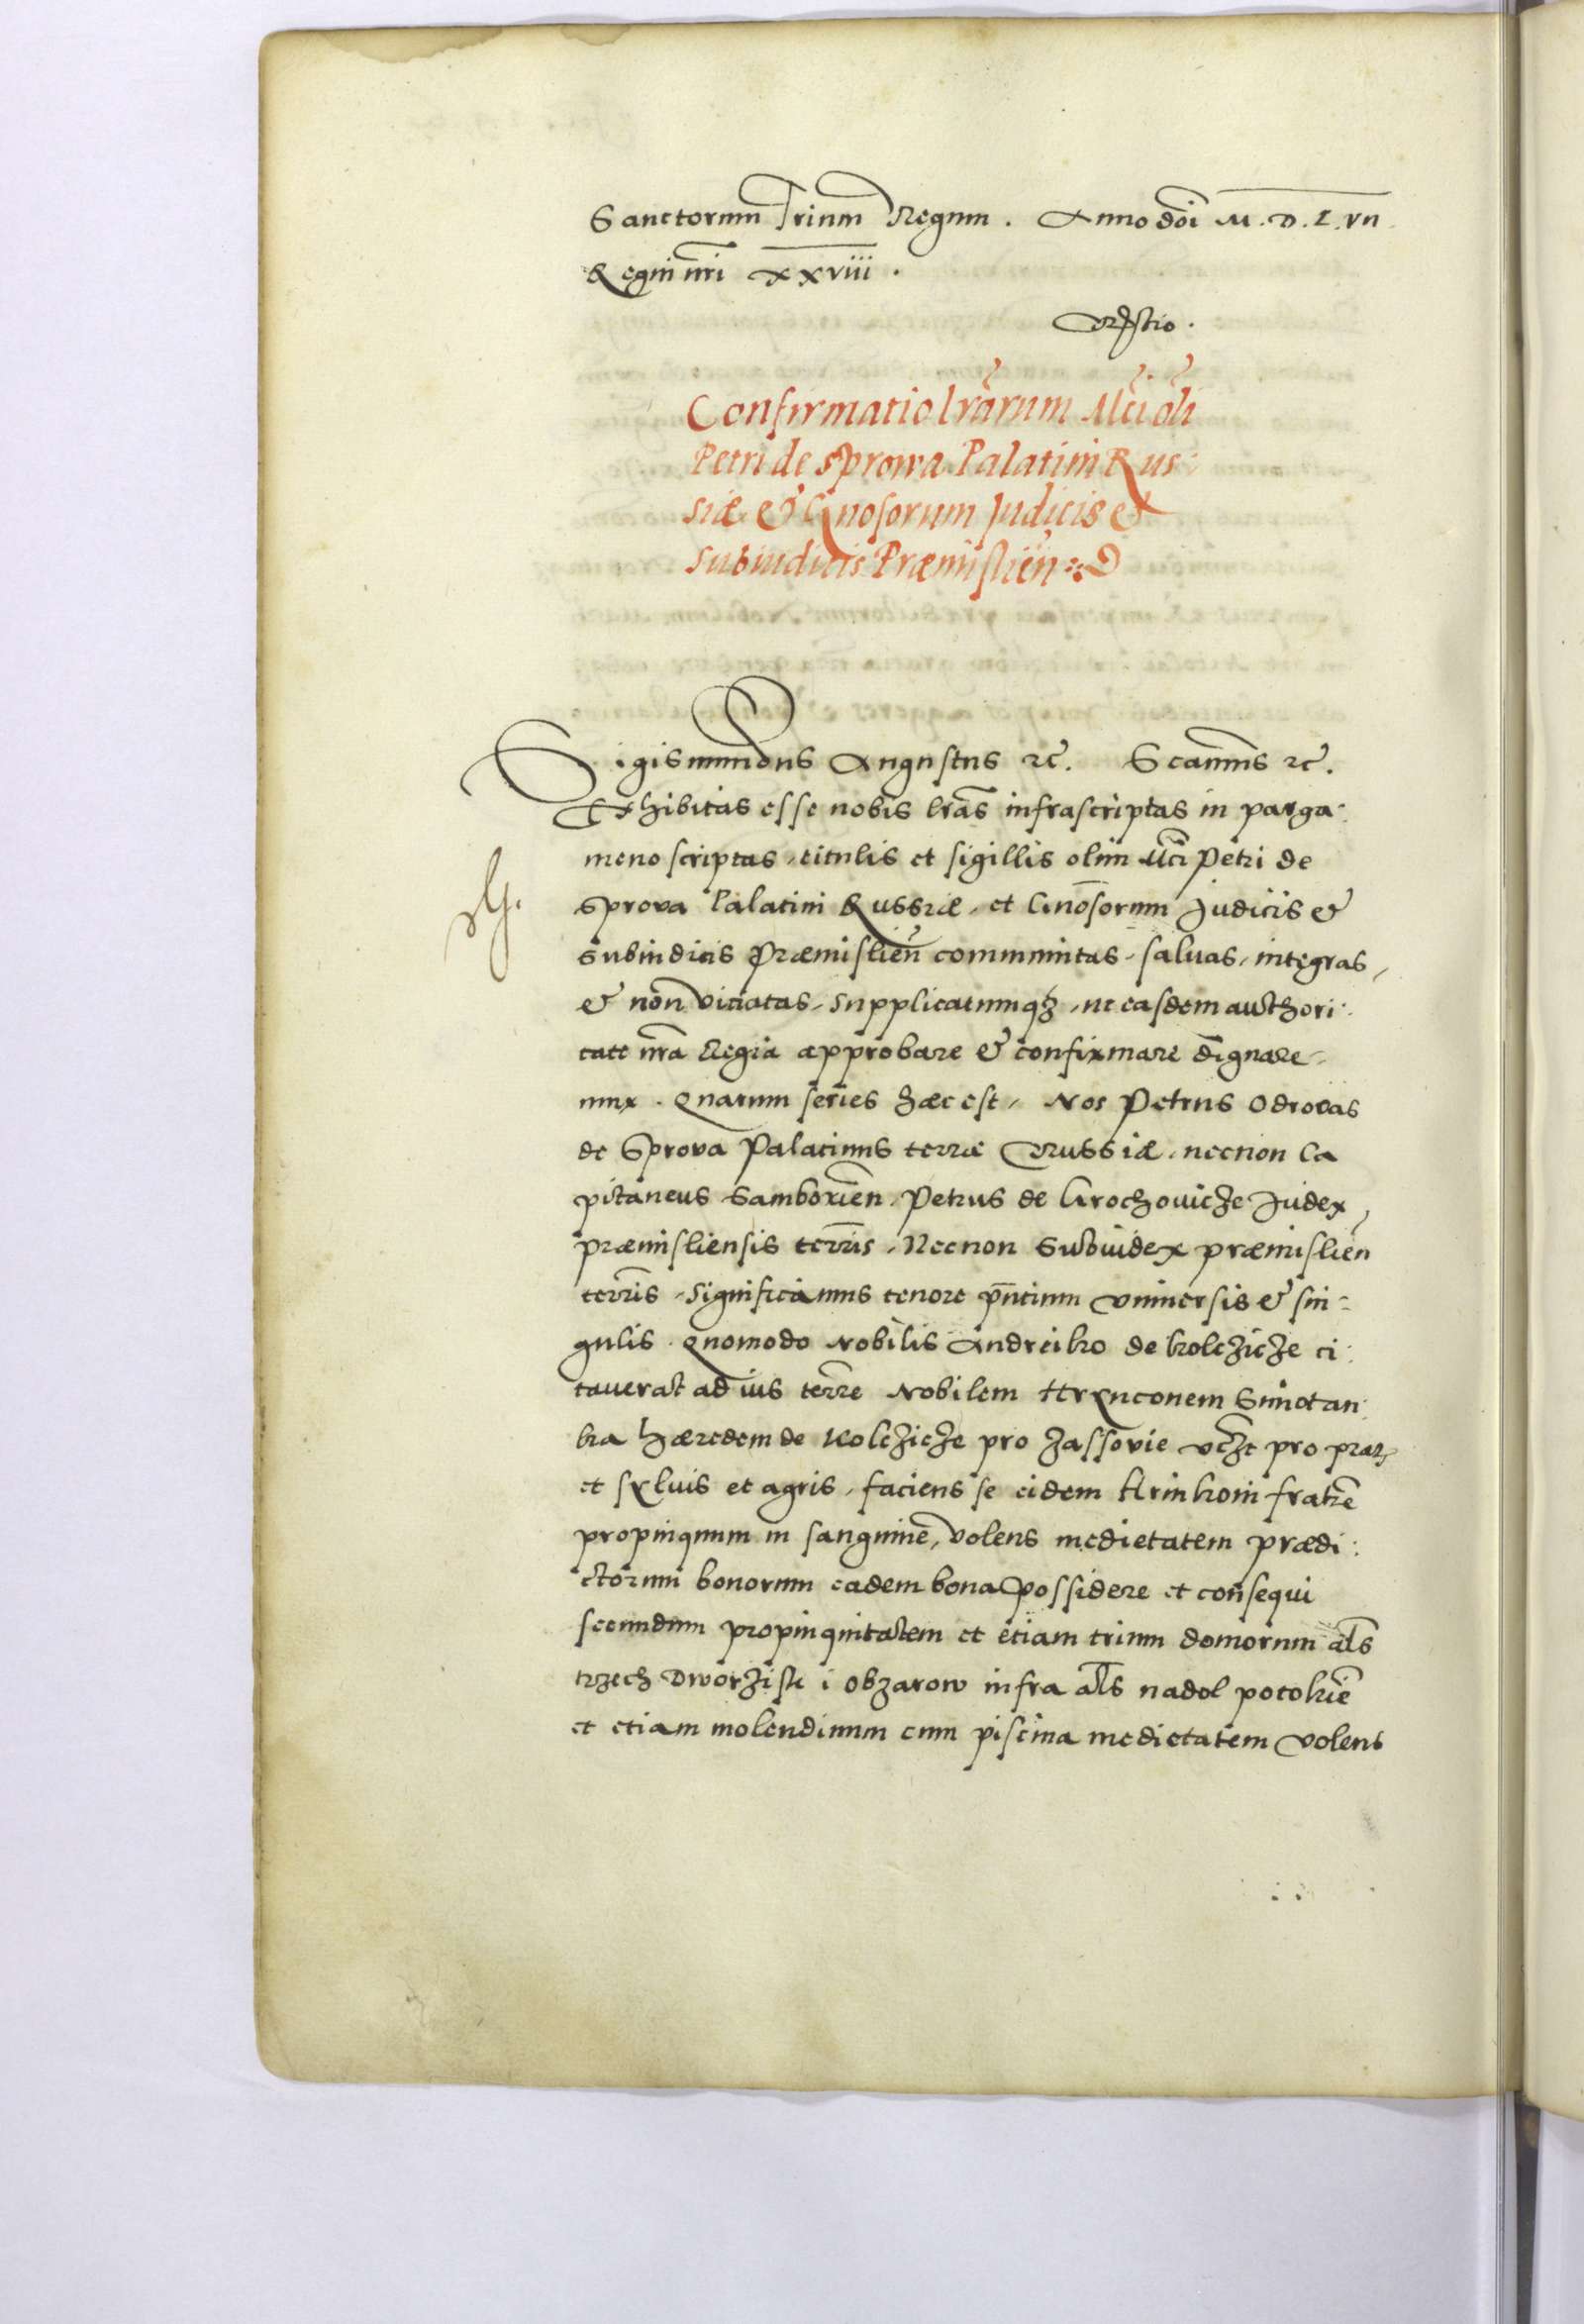 Sanctorum Trium Regum. Anno doi M.D.L.VII.
Regni nri XXVIII.
Confirmatio lrarum Mci oli
Petri de Sprowa Palatini Rus:
siæ & Gnosorum Judicis &
Subiudicis Præmislien
Sigismundus Augustus rc. Scamus rc.
Exhibitas esse nobis lras infrascriptas in parga:
meno scriptas, titulis et sigillis olim Mci Petri de
Sprova Palatini Russiæ, et Gnosorum Judicis &
Subiudicis Præmislien communitas, salvas, integras,
& non viciatas, supplicatumqz, ut easdem authori:
tate nra Regia approbare & confirmare dignare-
mur. Quarum series hæc est, Nos Petrus Odrovas
de Sprova Palatinus terræ Russiæ, necnon Ca
pitaneus Samborien, Petrus de Grochovicze Judex
præmisliensis terris, Necnon Subiudex præmislien
terris, Significamus tenore pntium universis & sin-
gulis. Quomodo Nobilis Andreiko de kolczicze ci:
taverat ad ius terre Nobilem Hrynconem Smotan:
ka hæredem de Kolczicze pro zassovie vcze pro prat
et sylvis et agris, faciens se eidem Hrinkoni fratre
propinquum in sanguine, volens medietatem prædi:
ctorum bonorum eadem bona possidere et consequi
secundum propinquitatem et etiam trium domorum als
trzech Dworzisk i obzarow infra als nadol potokie
et etiam molendinum cum piscina medietatem volens